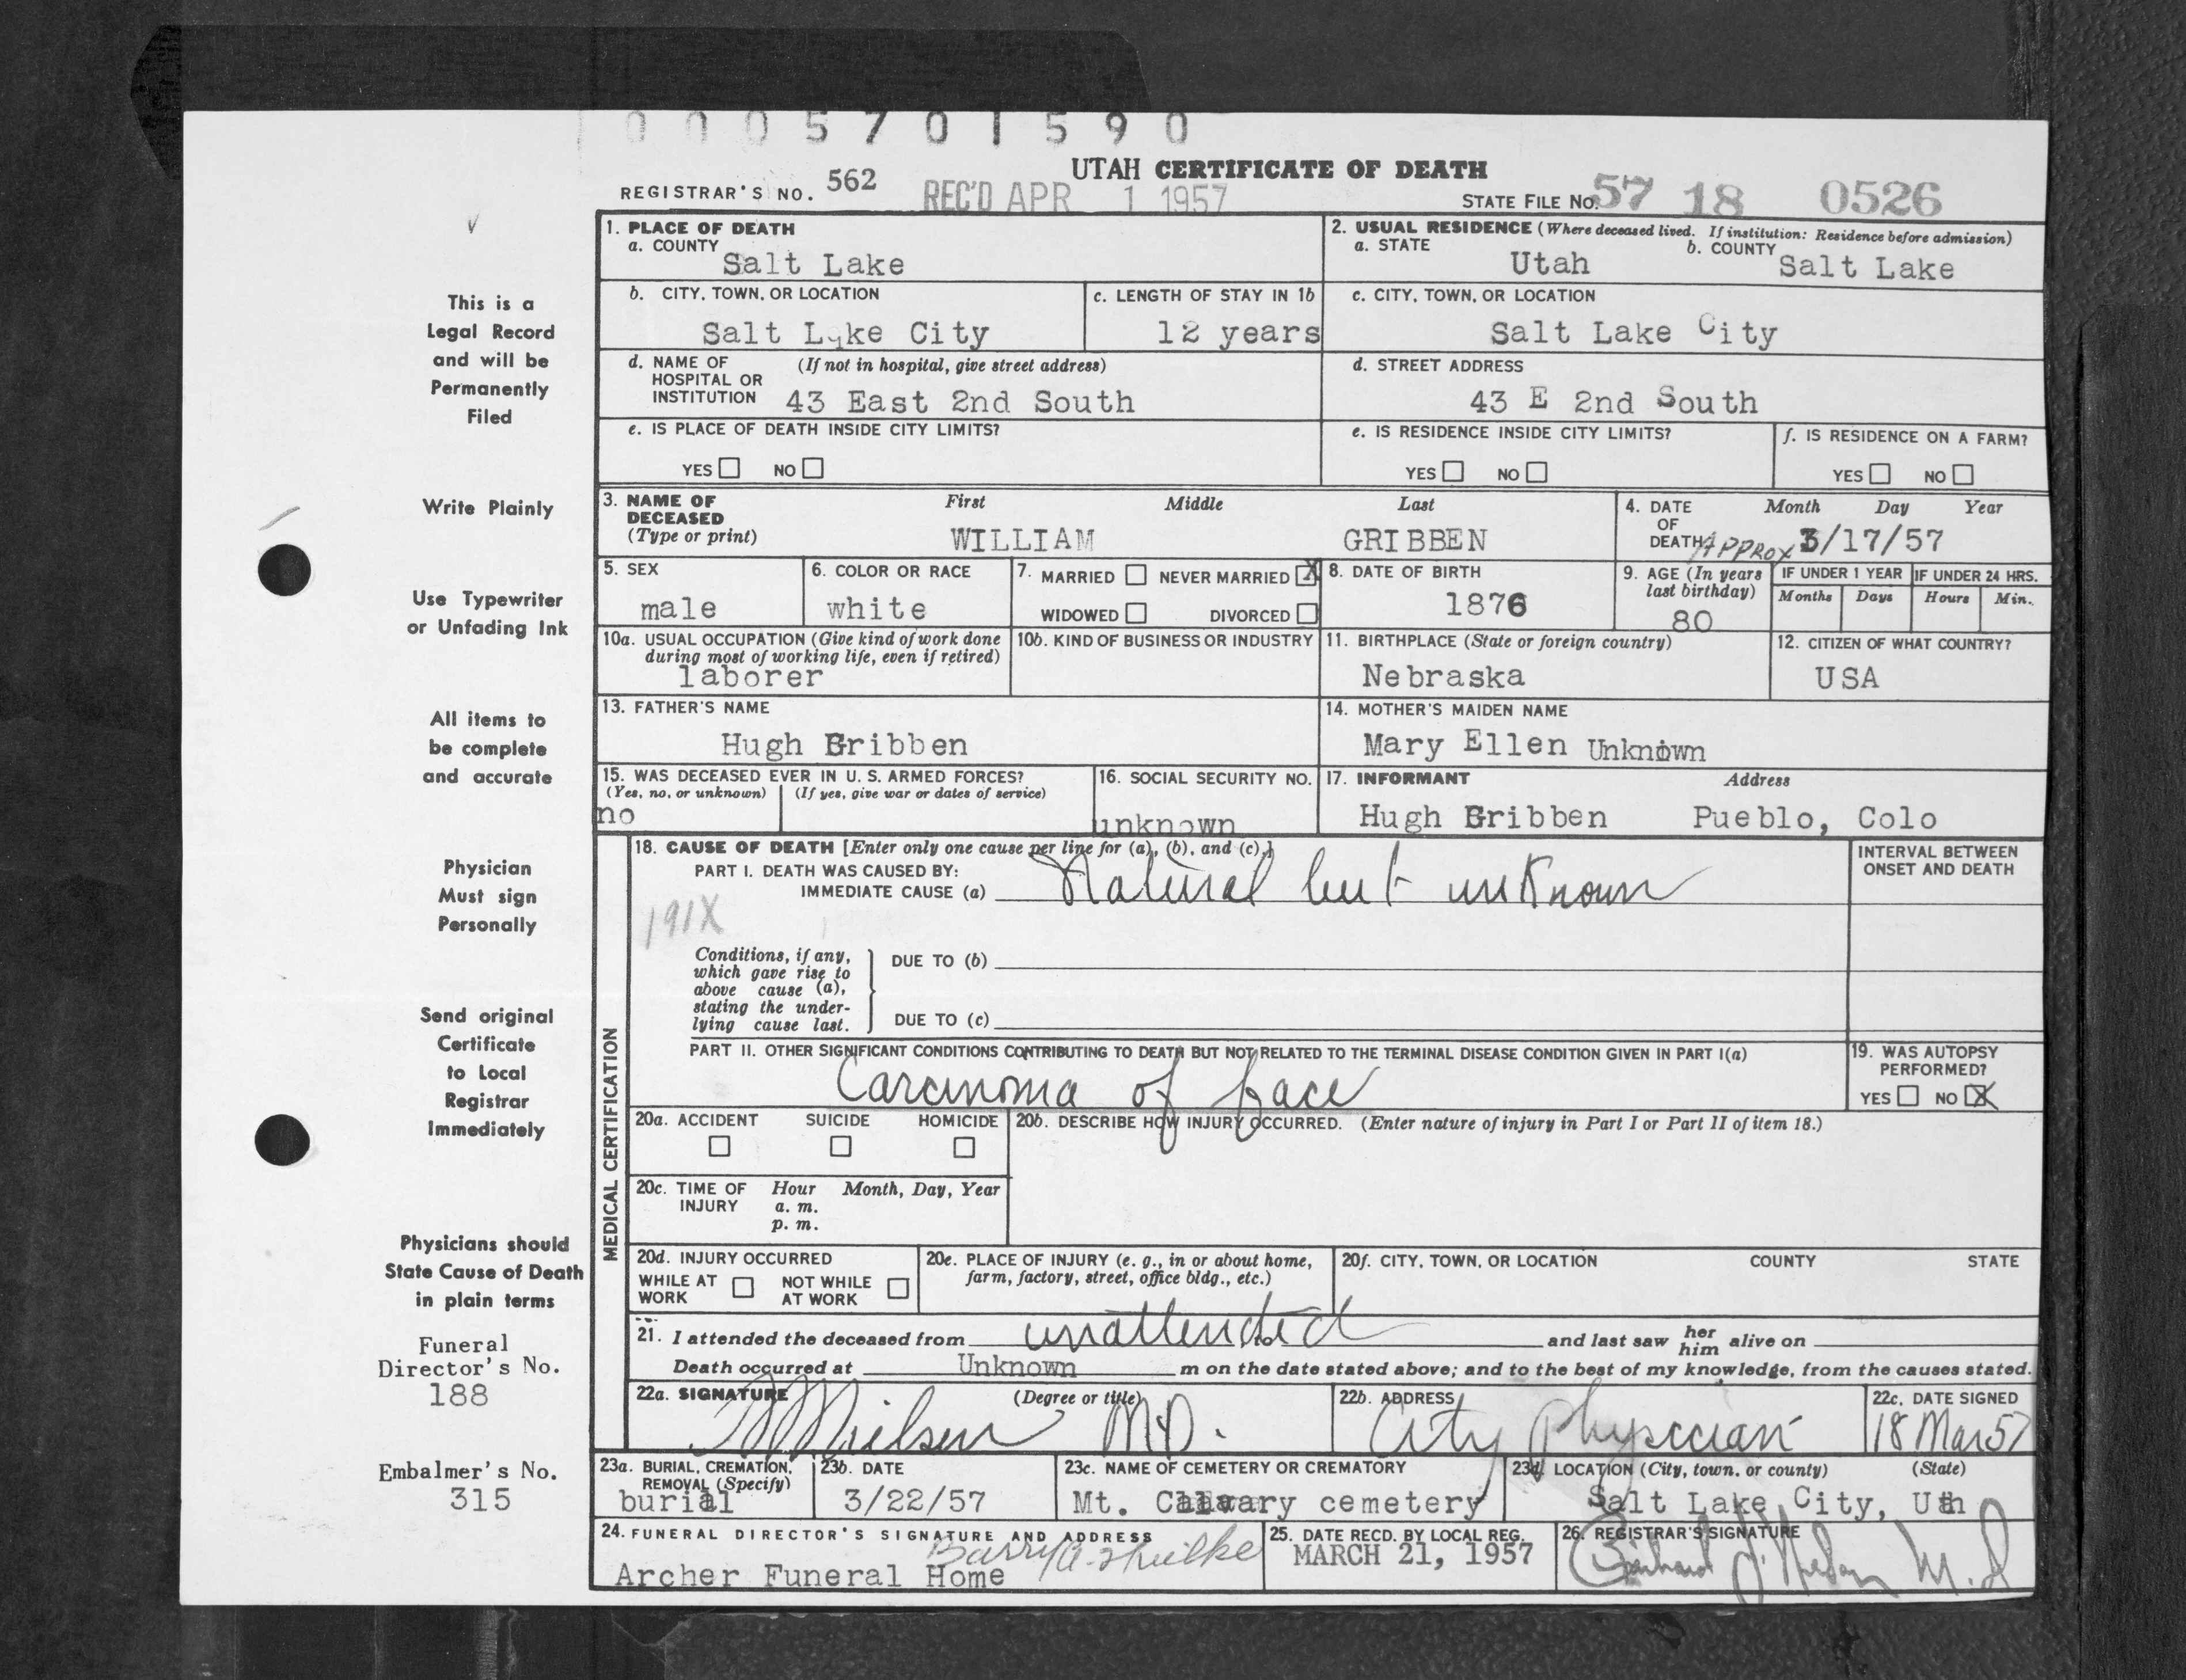 0005701590
UTAH CERTIFICATE OF DEATH
REGISTRAR'S NO. 562 REC'D APR 1 1957 STATE FILE NO. 57 18 0526
This is a
Legal Record
and will be
Permanently
Filed
Write Plainly
Use Typewriter
or Unfading Ink
All items to
be complete
and accurate
Physician
Must sign
Personally
Send original
Certificate
to Local
Registrar
Immediately
Physicians should
State Cause of Death
in plain terms
Funeral
Director's No.
188
Embalmer's No.
315
1. PLACE OF DEATH
a. COUNTY Salt Lake
2. USUAL RESIDENCE (Where deceased lived. If institution: Residence before admission)
a. STATE Utah b. COUNTY Salt Lake
b. CITY, TOWN, OR LOCATION
Salt Lake City
c. LENGTH OF STAY IN 1b
12 years
c. CITY, TOWN, OR LOCATION
Salt Lake City
d. NAME OF (If not in hospital, give street address)
HOSPITAL OR
INSTITUTION 43 East 2nd South
d. STREET ADDRESS
43 E 2nd South
e. IS PLACE OF DEATH INSIDE CITY LIMITS?
YES NO
e. IS RESIDENCE INSIDE CITY LIMITS?
YES NO
f. IS RESIDENCE ON A FARM?
YES NO
3. NAME OF First Middle Last
DECEASED
(Type or print) WILLIAM GRIBBEN
4. DATE Month Day Year
OF
DEATH APPROX 3/17/57
5. SEX
male
6. COLOR OR RACE
white
7. MARRIED NEVER MARRIED X
WIDOWED DIVORCED
8. DATE OF BIRTH
1876
9. AGE (In years
last birthday)
80
IF UNDER 1 YEAR
Months Days
IF UNDER 24 HRS.
Hours Min.
10a. USUAL OCCUPATION (Give kind of work done
during most of working life, even if retired)
laborer
10b. KIND OF BUSINESS OR INDUSTRY
11. BIRTHPLACE (State or foreign country)
Nebraska
12. CITIZEN OF WHAT COUNTRY?
USA
13. FATHER'S NAME
Hugh Gribben
14. MOTHER'S MAIDEN NAME
Mary Ellen Unknown
15. WAS DECEASED EVER IN U. S. ARMED FORCES?
(Yes, no, or unknown) (If yes, give war or dates of service)
no
16. SOCIAL SECURITY NO.
unknown
17. INFORMANT Address
Hugh Gribben Pueblo, Colo
MEDICAL CERTIFICATION
18. CAUSE OF DEATH [Enter only one cause per line for (a), (b), and (c).]
PART I. DEATH WAS CAUSED BY:
IMMEDIATE CAUSE (a) Natural but unknown
INTERVAL BETWEEN
ONSET AND DEATH
191X
Conditions, if any,
which gave rise to
above cause (a),
stating the under-
lying cause last.
DUE TO (b)
DUE TO (c)
PART II. OTHER SIGNIFICANT CONDITIONS CONTRIBUTING TO DEATH BUT NOT RELATED TO THE TERMINAL DISEASE CONDITION GIVEN IN PART I(a)
Carcinoma of face
19. WAS AUTOPSY
PERFORMED?
YES NO X
20a. ACCIDENT SUICIDE HOMICIDE
20b. DESCRIBE HOW INJURY OCCURRED. (Enter nature of injury in Part I or Part II of item 18.)
20c. TIME OF Hour Month, Day, Year
INJURY a. m.
p. m.
20d. INJURY OCCURRED
WHILE AT WORK NOT WHILE AT WORK
20e. PLACE OF INJURY (e. g., in or about home,
farm, factory, street, office bldg., etc.)
20f. CITY, TOWN, OR LOCATION COUNTY STATE
21. I attended the deceased from unattended and last saw her him alive on
Death occurred at Unknown m on the date stated above; and to the best of my knowledge, from the causes stated.
22a. SIGNATURE (Degree or title)
Nielsen MD.
22b. ADDRESS
City Physician
22c. DATE SIGNED
18 Mar 57
23a. BURIAL, CREMATION,
REMOVAL (Specify)
burial
23b. DATE
3/22/57
23c. NAME OF CEMETERY OR CREMATORY
Mt. Calvary cemetery
23d. LOCATION (City, town, or county) (State)
Salt Lake City, Uth
24. FUNERAL DIRECTOR'S SIGNATURE AND ADDRESS
Archer Funeral Home
25. DATE RECD. BY LOCAL REG.
MARCH 21, 1957
26. REGISTRAR'S SIGNATURE
M.D